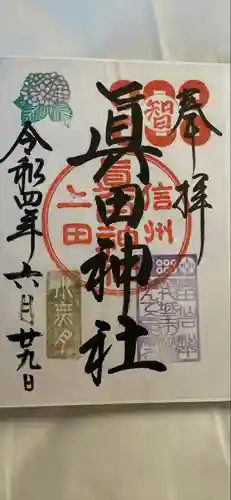 奉拝
智
眞田神社
信州
眞田
神社
上田
令和四年
六月廿九日
水無月